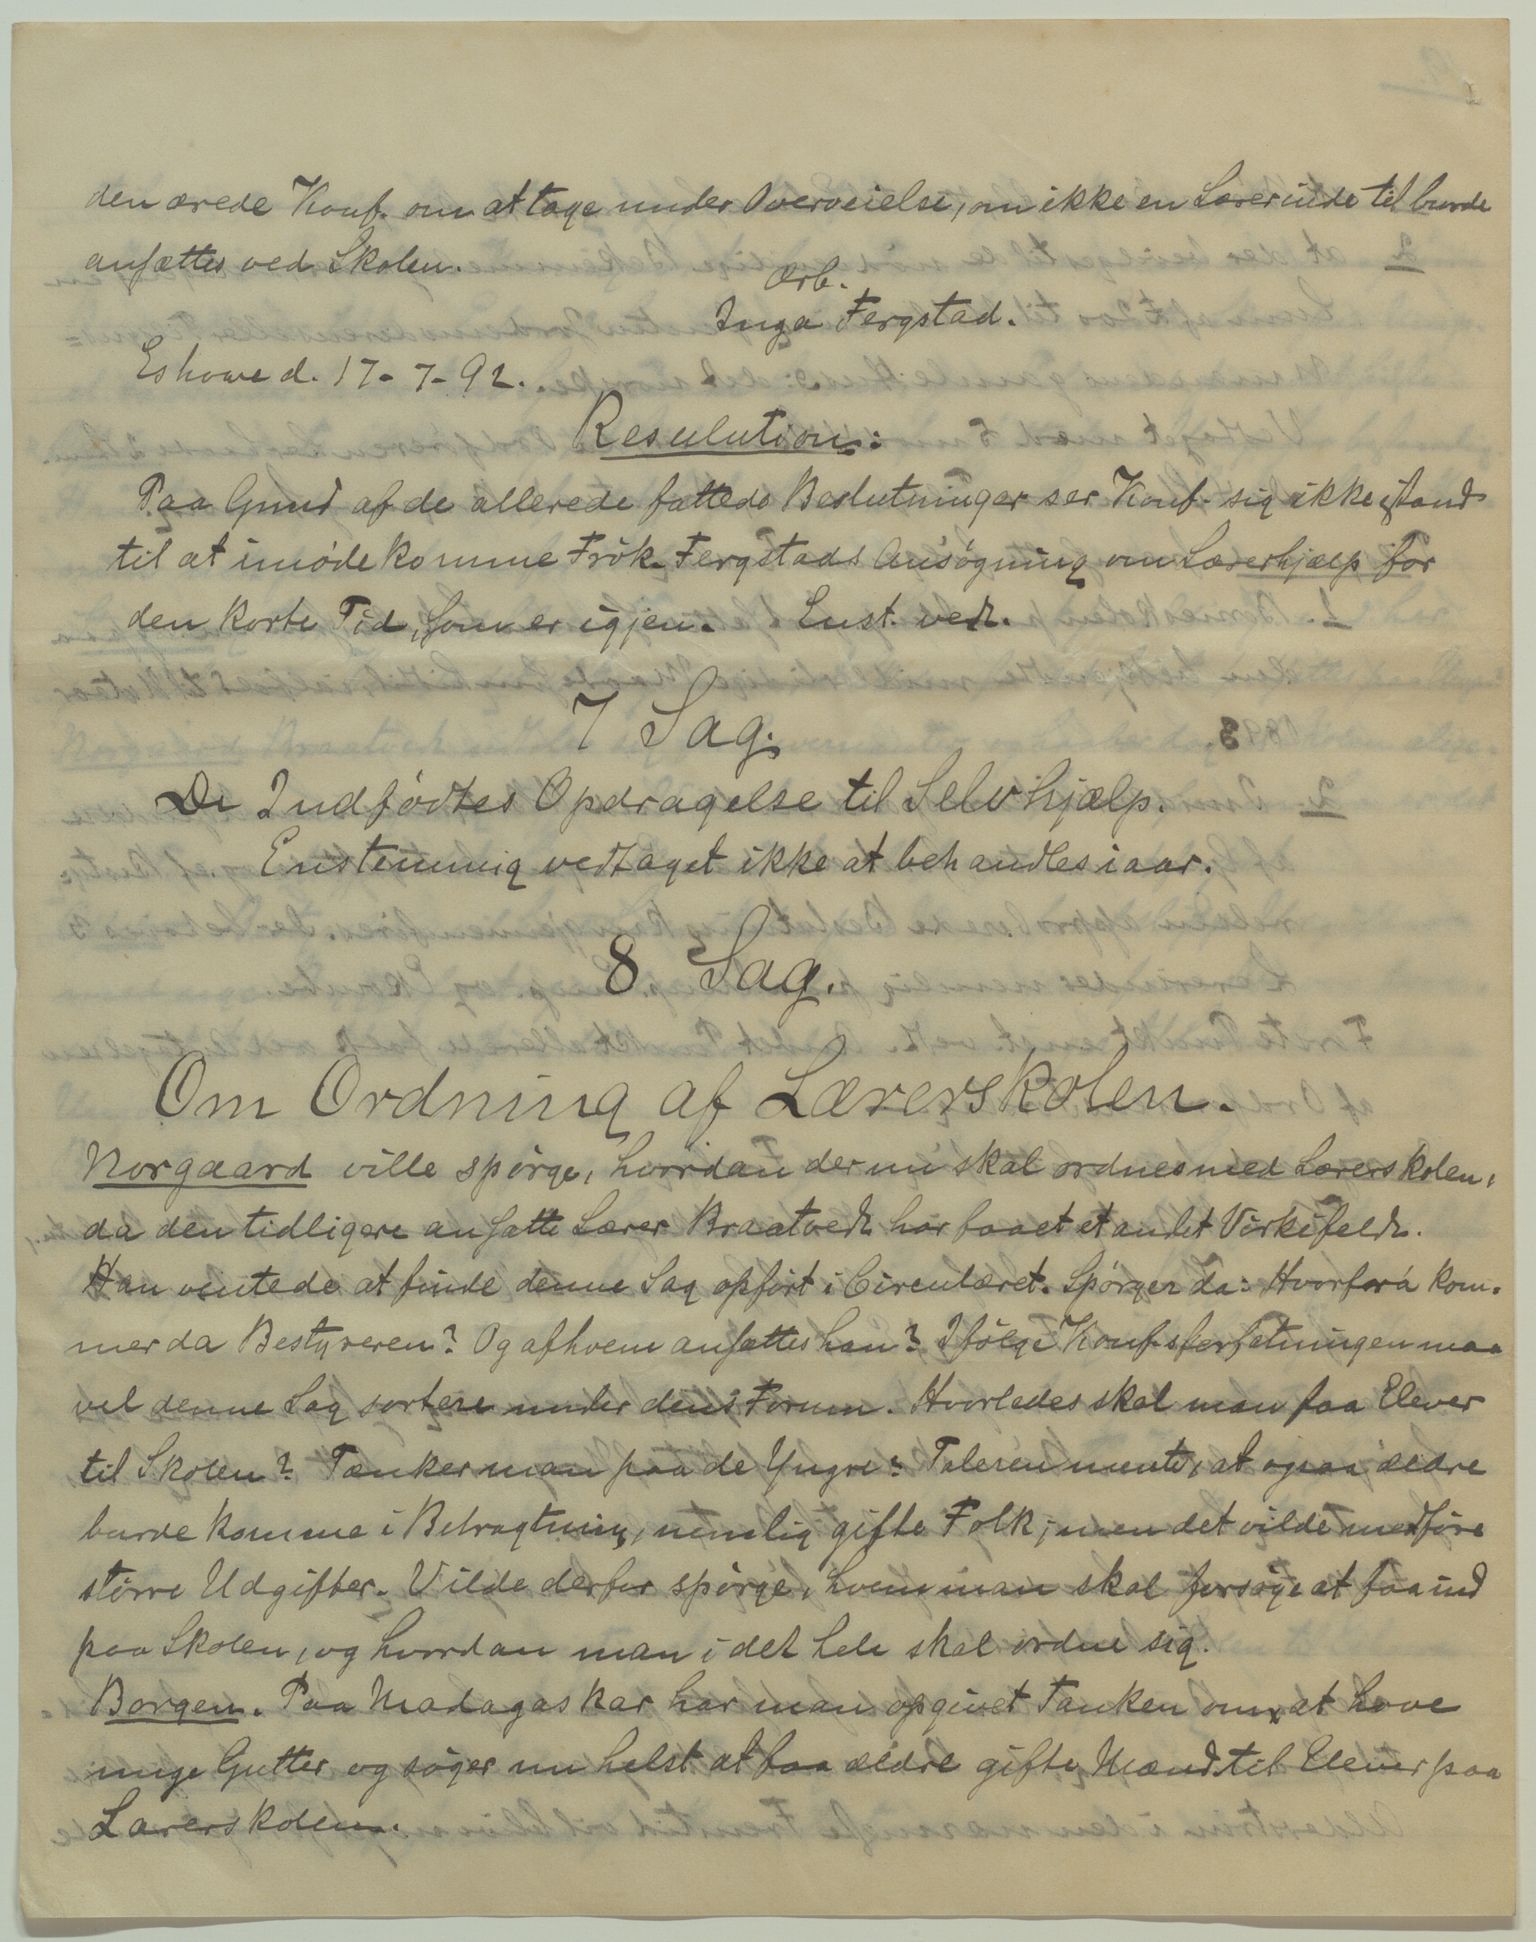 den ærede Konf. om at tage under Overveielse, om ikke en Lærerinde til burde
ansættes ved Skolen.
Ærb.
Inga Fergstad.
Eshowe d. 17-7-92.
Resulution:
Paa Grund af de allerede fattede Beslutninger ser Konf. sig ikke istand
til at imødekomme Frøk. Fergstads Ansøgning om Lærerhjælp for
den korte Tid, som er igjen. Enst. vedt.
7 Sag.
De Indfødtes Opdragelse til Selvhjælp.
Enstemmig vedtaget ikke at behandles iaar.
8 Sag.
Om Ordning af Lærerskolen.
Norgaard ville spørge, hvordan der nu skal ordnes med Lærerskolen,
da den tidligere ansatte Lærer Braatvedt har faaet et andet Virkefeldt.
Han ventede at finde denne Sag opført i Circulæret. Spørger da: Hvorfra kom-
mer da Bestyreren? Og af hvem ansættes han? Ifølge Konfsforfatningen maa
vel denne Sag sortere under dens Forum. Hvorledes skal man faa Elever
til Skolen? Tænker man paa de Yngre? Taleren mente, at ogsaa ældre
burde komme i Betragtning, nemlig gifte Folk; men det vilde medføre
større Udgifter. Vilde derfor spørge, hvem man skal forsøge at faa ind
paa Skolen, og hvordan man i det hele skal ordne sig.
Borgen. Paa Madagaskar har man opgivet Tanken om at have
unge Gutter og søger nu helst at faa ældre gifte Mænd til Elever paa
Lærerskolen.